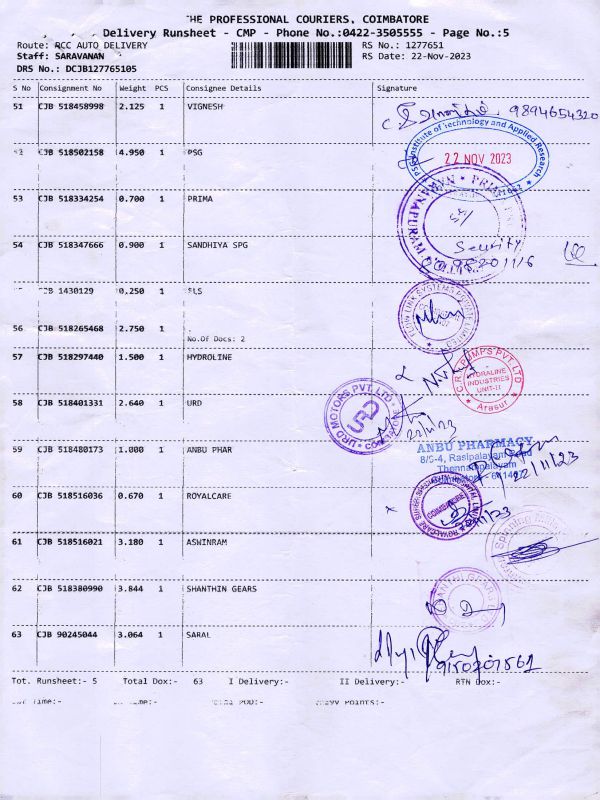 THE PROFESSIONAL COURIERS, COIMBATORE
Delivery Runsheet - CMP - Phone No.:0422-3505555 - Page No.:5
Route: RCC AUTO DELIVERY RS No.: 1277651
Staff: SARAVANAN RS Date: 22-Nov-2023
DRS No.: DCJB127765105
S No Consignment No Weight PCS Consignee Details Signature
51 CJB 518458998 2.125 1 VIGNESH
9894654320
PSG Institute of Technology and Applied Research
22 NOV 2023
52 CJB 518502158 4.950 1 PSG
53 CJB 518334254 0.700 1 PRIMA
54 CJB 518347666 0.900 1 SANDHIYA SPG
Security
CJB 1430129 0.250 1 SLS
56 CJB 518265468 2.750 1 .
No.Of Docs: 2
57 CJB 518297440 1.500 1 HYDROLINE
C.R.I. PUMPS PVT. LTD
HYDRALINE
INDUSTRIES
UNIT-II
Arasur
58 CJB 518401331 2.640 1 URD
URD MOTORS PVT. LTD
URD
22/11/23
59 CJB 518480173 1.000 1 ANBU PHAR
ANBU PHARMACY
Rasipalayam Road
Thennampalayam
22/11/23
60 CJB 518516036 0.670 1 ROYALCARE
ROYALCARE SUPER SPECIALITY HOSPITAL
COIMBATORE
61 CJB 518516021 3.180 1 ASWINRAM
Spinning Mills
62 CJB 518380990 3.844 1 SHANTHIN GEARS
63 CJB 90245044 3.064 1 SARAL
9150207561
Tot. Runsheet:- 5 Total Dox:- 63 I Delivery:- II Delivery:- RTN Dox:-